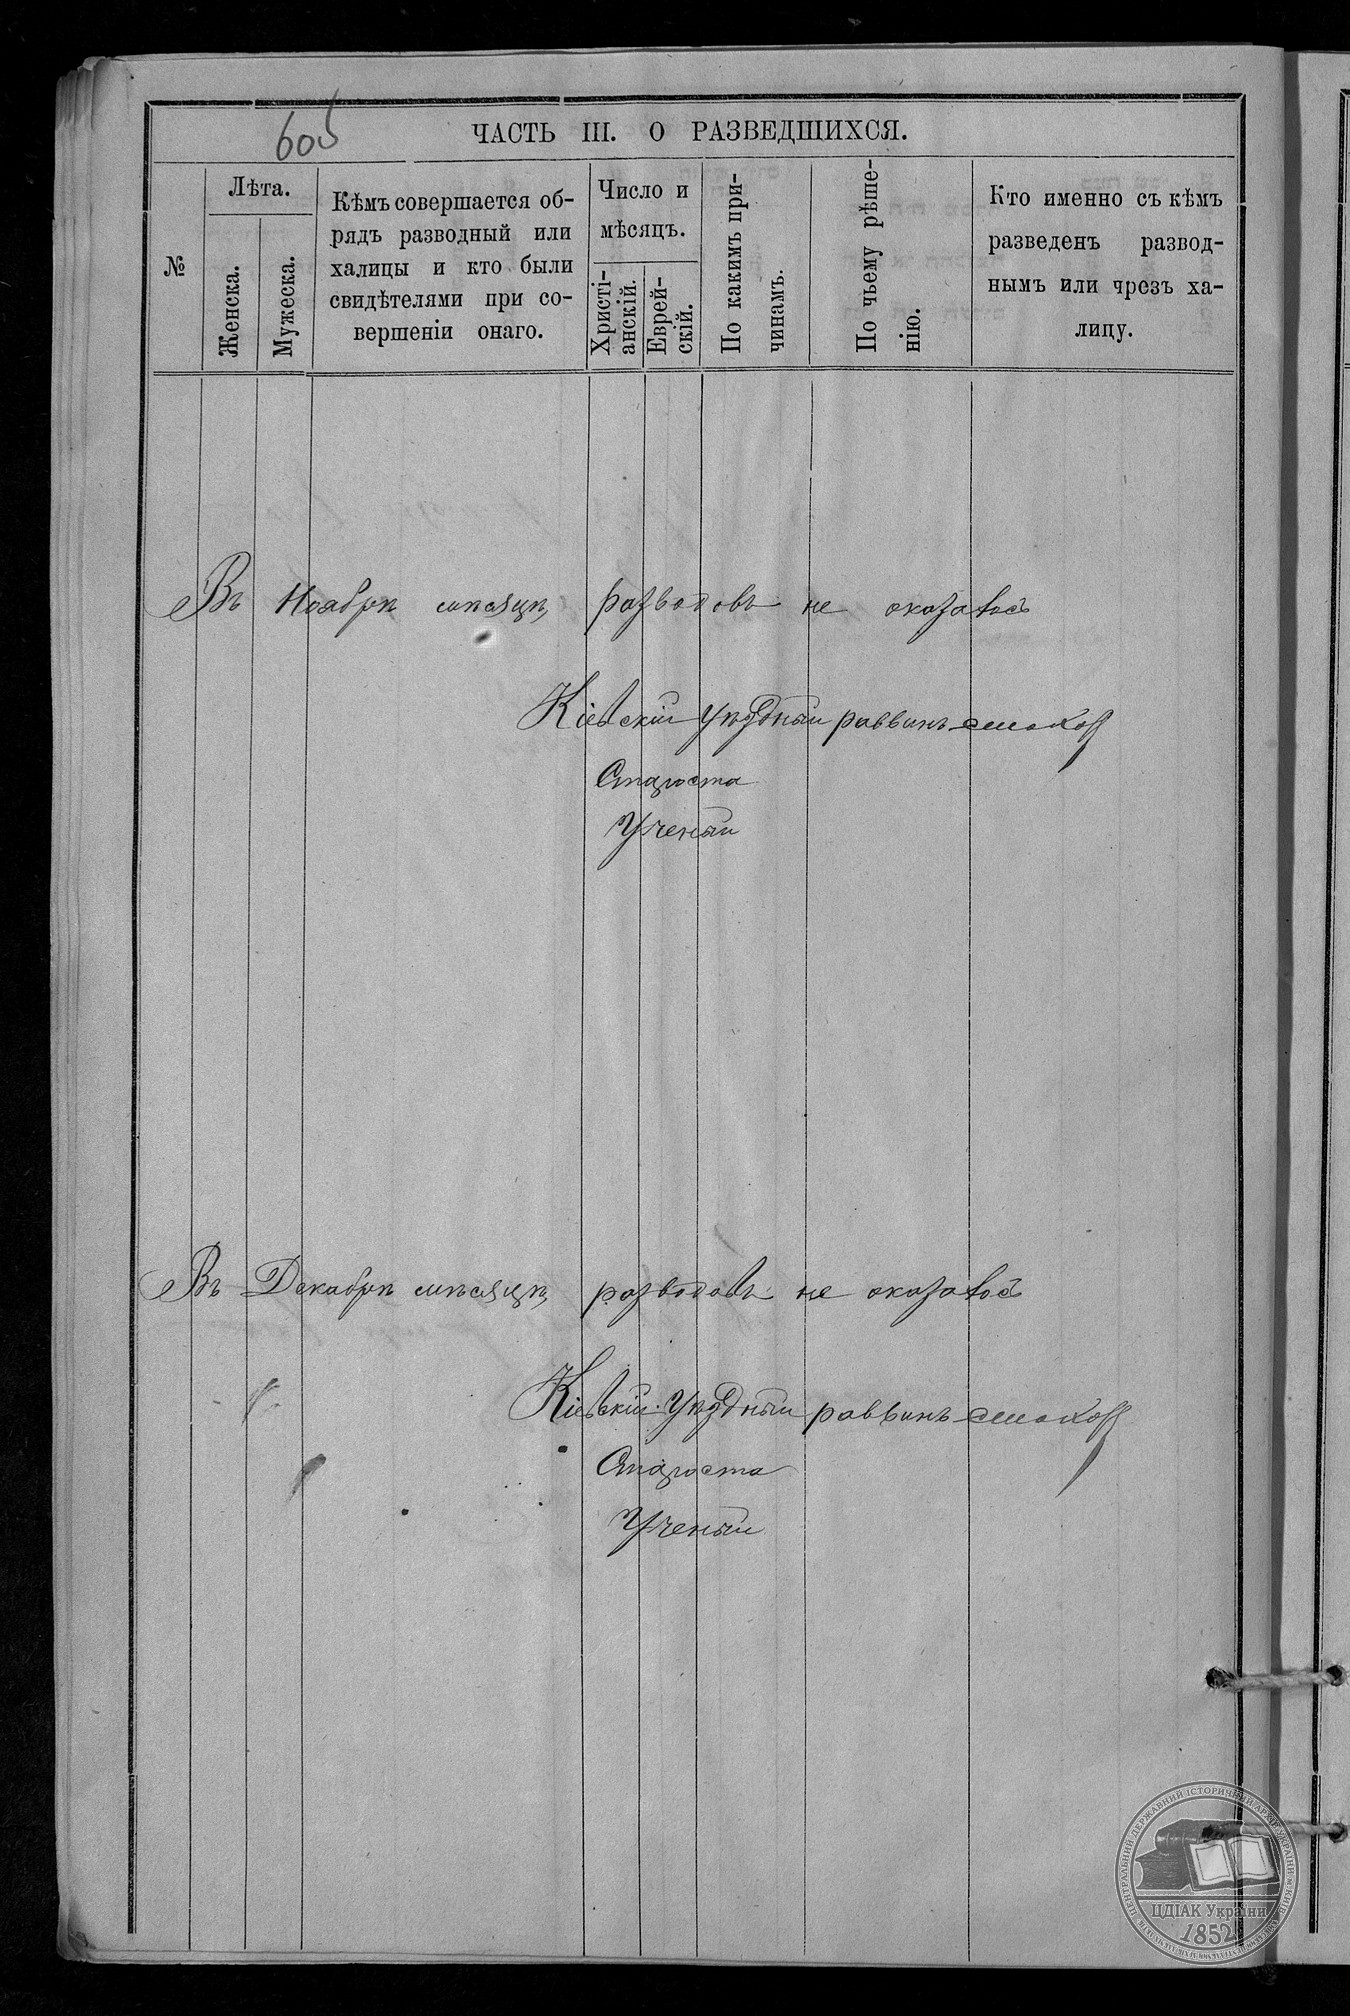 605
ЧАСТЬ III. О РАЗВЕДШИХСЯ.
№
Лѣта.
Женска.
Мужеска.
Кѣмъ совершается об-
рядъ разводный или
халицы и кто были
свидѣтелями при со-
вершеніи онаго.
Число и
мѣсяцъ.
Христі-
анскій.
Еврей-
скій.
По какимъ при-
чинамъ.
По чьему рѣше-
нію.
Кто именно съ кѣмъ
разведенъ развод-
нымъ или чрезъ ха-
лицу.
Въ Ноябрѣ мѣсяцѣ разводовъ не оказалось
Кіевскій Уѣздный раввинъ
Староста
Ученый
Въ Декабрѣ мѣсяцѣ разводовъ не оказалось
Кіевскій Уѣздный раввинъ
Староста
Ученый
ЦЕНТРАЛЬНИЙ ДЕРЖАВНИЙ ІСТОРИЧНИЙ АРХІВ УКРАЇНИ М. КИЇВ
ЦДІАК України
1852